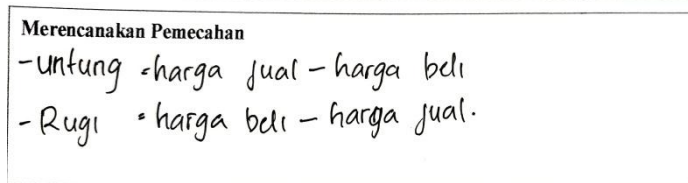 Merencanakan Pemecahan
-untung =harga jual - harga beli
-Rugi = harga beli - harga jual.